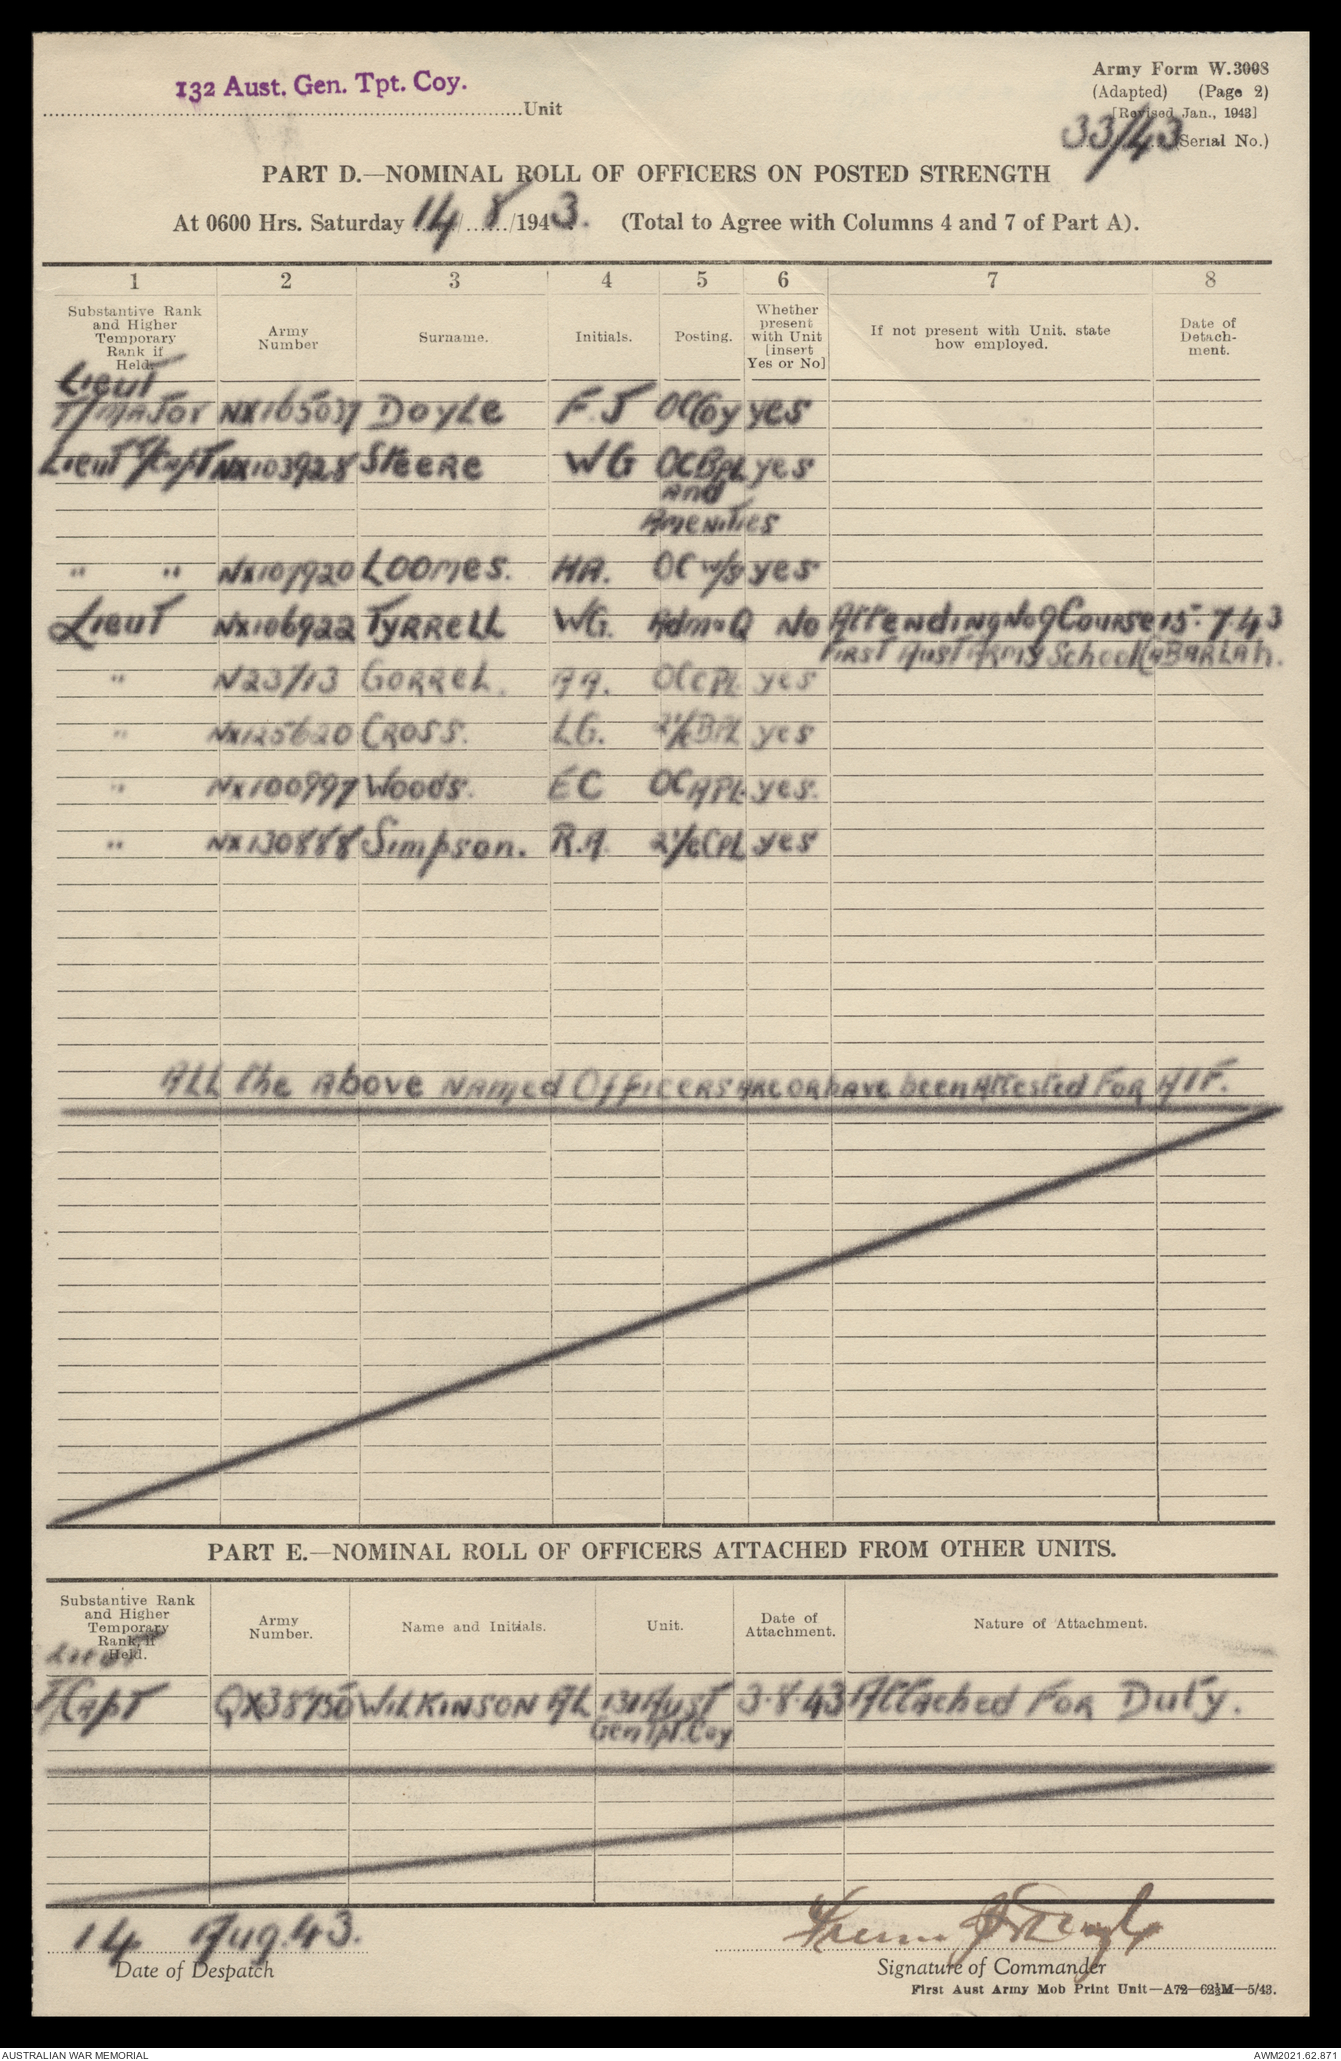 132 Aust. Gen. Tpt. Coy.
Unit
Army Form W.3008
(Adapted) (Page 2)
[Revised Jan., 1943]
33/43 (Serial No.)
PART D.—NOMINAL ROLL OF OFFICERS ON POSTED STRENGTH
At 0600 Hrs. Saturday 14/8/1943. (Total to Agree with Columns 4 and 7 of Part A).
1 2 3 4 5 6 7 8
Substantive Rank and Higher Temporary Rank if Held. Army Number Surname. Initials. Posting. Whether present with Unit [insert Yes or No] If not present with Unit, state how employed. Date of Detachment.
Lieut
T/MAJOR NX165037 DOYLE F.J OC Coy yes
Lieut T/Capt NX103928 STEERE WG OCBPL yes
and
Amenities
" " NX107920 LOOMES. HA. OC w/s yes
Lieut NX106922 TYRRELL WG. Adm&Q No Attending No 9 Course 15-7-43
First Aust Army School CABARLAH.
" N23713 GORREL. AA. OCCPL yes
" NX125620 CROSS. LG. 2i/cBPL yes
" NX100997 Woods. EC OCAPL yes.
" NX130888 Simpson. R.A. 2i/cCPL yes
ALL the above NAMED OFFICERS ARE OR have been Attested For AIF.
PART E.—NOMINAL ROLL OF OFFICERS ATTACHED FROM OTHER UNITS.
Substantive Rank and Higher Temporary Rank, if Held. Army Number. Name and Initials. Unit. Date of Attachment. Nature of Attachment.
Lieut
T/Capt QX38750 WILKINSON AL 131 Aust 3-8-43 Attached For Duty.
Gen Tpt. Coy
14 Aug. 43.
Date of Despatch
Signature of Commander
First Aust Army Mob Print Unit—A72—62½M—5/43.
AUSTRALIAN WAR MEMORIAL
AWM2021.62.871